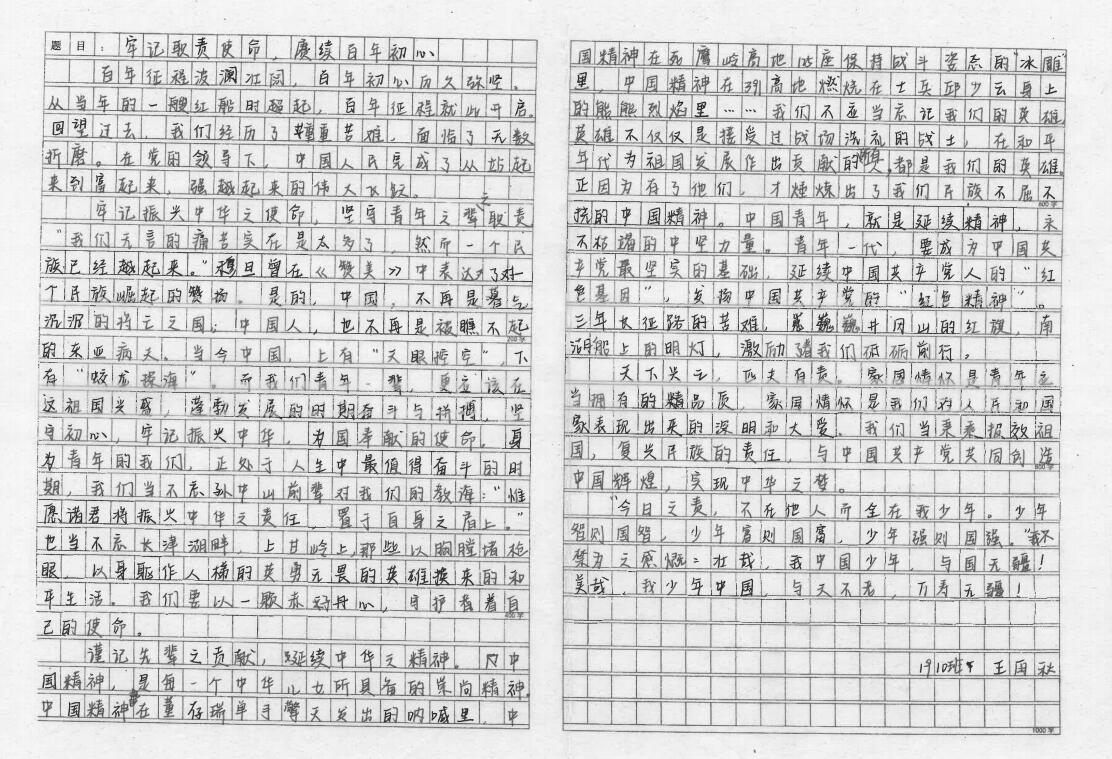 题目：牢记职责使命，赓续百年初心
百年征程波澜壮阔，百年初心历久弥坚。
从当年的一艘红船时起，百年征程就此开启。
回望过去，我们经历了重重苦难，面临了无数
折磨。在党的领导下，中国人民完成了从站起
来到富起来，强起来的伟大飞跃。
牢记振兴中华之使命，坚守青年之辈之职责
“我们无言的痛苦实在是太多了，然而一个民
族已经起来。”穆旦曾在《赞美》中表达了对一
个民族崛起的赞扬。是的，中国，不再是暮气
沉沉的将亡之国；中国人，也不再是被瞧不起
200字
的东亚病夫。当今中国，上有“天眼”，下
有“蛟龙探海”。而我们青年一辈，更应该在
这祖国兴盛，蓬勃发展的时期奋斗与拼搏，坚
守初心，牢记振兴中华，为国奉献的使命。身
为青年的我们，正处于人生中最值得奋斗的时
期，我们当不忘孙中山前辈对我们的教诲：“惟
愿诸君将振兴中华之责任，置于自身之肩上。”
也当不忘长津湖畔，上甘岭上，那些以胸膛堵枪
眼，以身躯作人梯的英勇无畏的英雄换来的和
平生活。我们要以一颗赤丹心，守护着自
400字
己的使命。
谨记先辈之贡献，延续中华之精神。中
国精神，是每一个中华儿女所具有的崇尚精神。
中国精神在董存瑞单手擎天发出的呐喊里，中
国精神在死鹰岭高地125座保持战斗姿态的“冰雕”
里，中国精神在391高地燃烧在士兵邱少云身上
的熊熊烈焰里……我们不应当忘记我们的英雄
英雄不仅仅是接受过战场洗礼的战士，在和平
年代为祖国发展作出贡献的人，都是我们的英雄。
正因为有了他们，才锤炼出了我们民族不屈不
600字
挠的中国精神。中国青年，就是延续精神，永
不枯竭的中坚力量。青年一代，要成为中国共
产党最坚实的基础，延续中国共产党人的“红
色基因”，发扬中国共产党的“红色精神”。
三年长征路的苦难，巍巍井冈山的红旗，南
湖船上的明灯，激励着我们砥砺前行。
天下兴亡，匹夫有责。家国情怀是青年应
当拥有的精品质，家国情怀是我们对人民和国
家表现出来的深明和大爱。我们当秉承报效祖
国，复兴民族的责任，与中国共产党共同创造
800字
中国辉煌，实现中华之梦。
“今日之责，不在他人而全在我少年。少年
智则国智，少年富则国富，少年强则国强。”我不
禁为之感慨：壮哉，我中国少年，与国无疆！
美哉，我少年中国，与天不老，万寿无疆！
1910班 王国秋
1000字